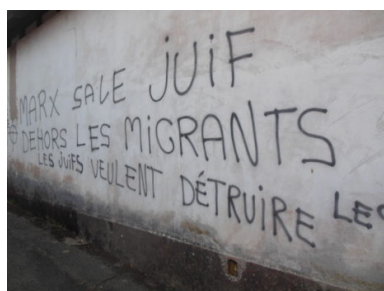 MARX SALE JUIF
DEHORS LES MiGRANTS
LES JUiFS VEULENT DÉTRUIRE LES